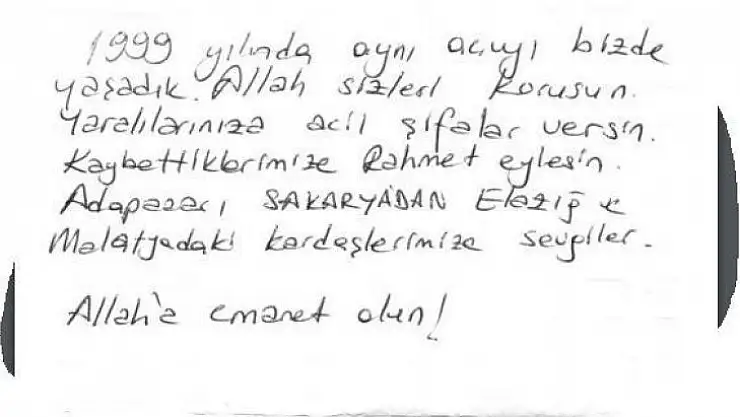 1999 yılında aynı acıyı bizde
yaşadık. Allah sizleri Korusun.
Yaralılarınıza acil şifalar versin.
Kaybettiklerimize Rahmet eylesin.
Adapazarı SAKARYA'DAN Elazığ ve
Malatyadaki kardeşlerimize sevgiler.
Allah'a emanet olun!